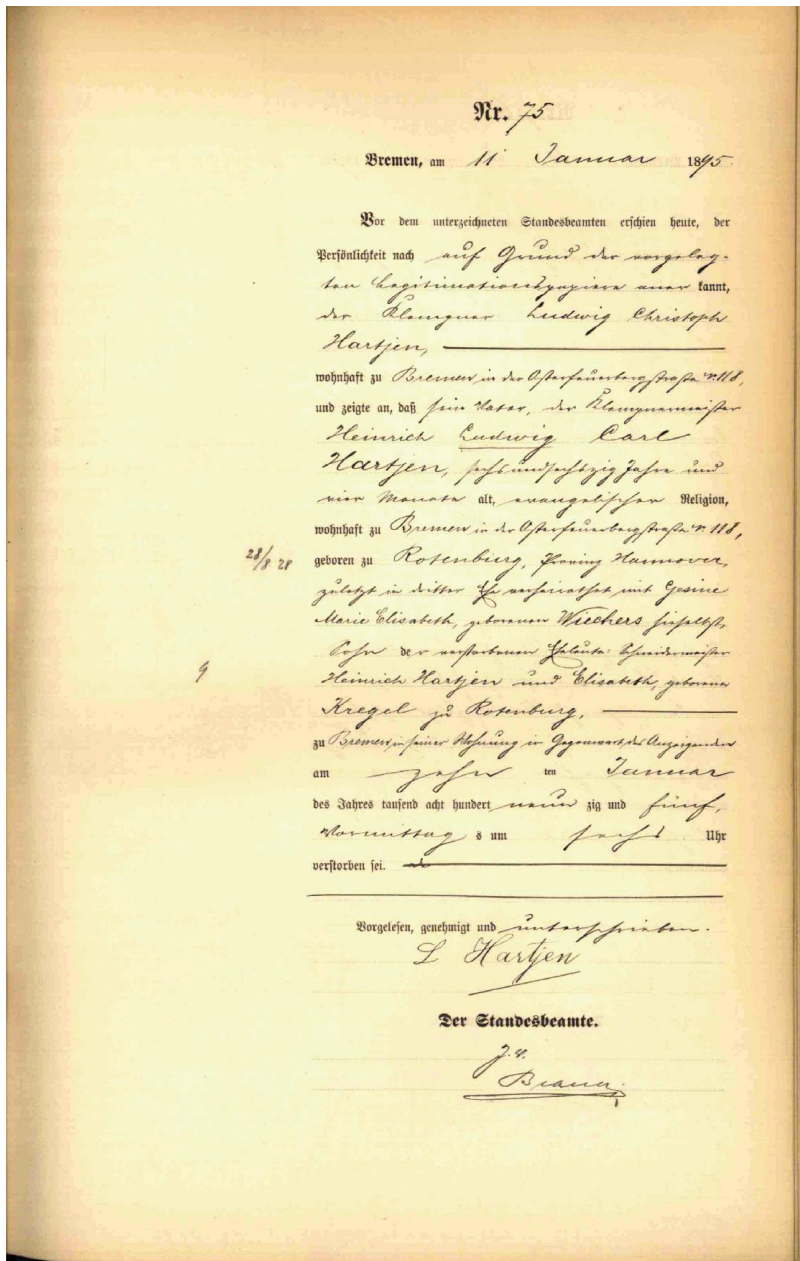 Nr. 75
Bremen, am 11 Januar 1895.
Vor dem unterzeichneten Standesbeamten erschien heute, der
Persönlichkeit nach auf Grund der vorgeleg-
ten Legitimationspapiere aner kannt,
der Klempner Ludwig Christoph
Hartjen,
wohnhaft zu Bremen in der Osterfeuerbergstraße № 118,
und zeigte an, daß sein Vater, der Klempnermeister
Heinrich Ludwig Carl
Hartjen, sechsundsechszig Jahre und
vier Monate alt, evangelischer Religion,
wohnhaft zu Bremen in der Osterfeuerbergstraße № 118,
28/8 28 geboren zu Rotenburg, Provinz Hannover,
zuletzt in dritter Ehe verheirathet mit Gesine
Marie Elisabeth, geborenen Wiechers hieselbst,
Sohn der verstorbenen Eheleute: Schneidermeister
9 Heinrich Hartjen und Elisabeth, geborene
Kregel zu Rotenburg,
zu Bremen in seiner Wohnung in Gegenwart des Anzeigenden
am zehn ten Januar
des Jahres tausend acht hundert neun zig und fünf,
Vormittag s um sechs Uhr
verstorben sei.
Vorgelesen, genehmigt und unterschrieben.
L Hartjen
Der Standesbeamte.
J. V.